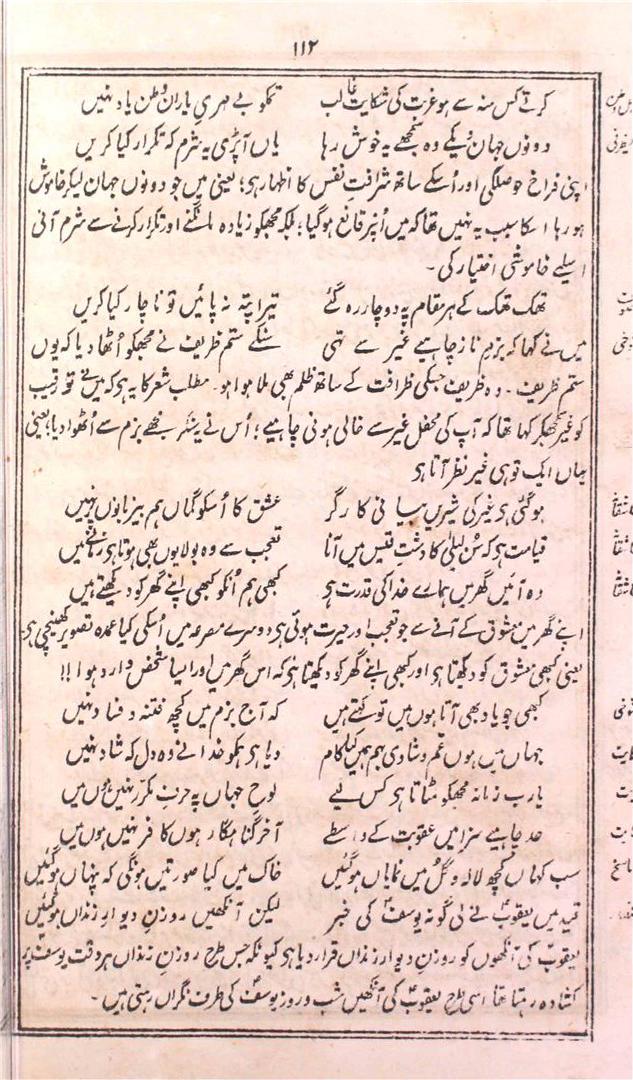 ۱۱۲
کرتے کس منہ سے ہو غربت کی شکایت غالب تمکو بے مہریِ یارانِ وطن یاد نہیں
دونوں جہان دیکے وہ سمجھے یہ خوش رہا یاں آپڑی یہ شرم کہ تکرار کیا کریں
اپنی فراخ حوصلگی اور اُسکے ساتھ شرافتِ نفس کا اظہار ہی؛ یعنی میں جو دونوں جہان لیکر خاموش
ہو رہا اسکا سبب یہ نہیں تھا کہ میں اُنپر قانع ہوگیا؛ بلکہ مجھکو زیادہ مانگنے اور تکرار کرنے سے شرم آئی
اسلیے خاموشی اختیار کی۔
تھک تھک کے ہر مقام پہ دو چار رہ گئے تیرا پتہ نہ پائیں تو ناچار کیا کریں
میں نے کہا کہ بزمِ ناز چاہیے غیر سے تہی سنکے ستم ظریف نے مجھکو اُٹھا دیا کہ یوں
ستم ظریف۔ وہ ظریف جسکی ظرافت کے ساتھ ظلم بھی ملا ہوا ہو۔ مطلب شعر کا یہ ہی کہ میں نے تو رقیب
کو غیر سمجھکر کہا تھا کہ آپ کی محفل غیر سے خالی ہونی چاہیے؛ اُس نے یہ سنکر مجھے بزم سے اُٹھوا دیا؛ یعنی
یہاں ایک تو ہی غیر نظر آتا ہی
ہوگئی ہی غیر کی شیریں بیانی کارگر عشق کا اُسکو گماں ہم بیزبانوں پر نہیں
قیامت ہی کہ سُن لیلیٰ کا دشتِ قیس میں آنا تعجب سے وہ بولا یوں بھی ہوتا ہی زمانے میں
وہ آئیں گھر میں ہمارے خدا کی قدرت ہی کبھی ہم اُنکو کبھی اپنے گھر کو دیکھتے ہیں
اپنے گھر میں معشوق کے آنے سے جو تعجب اور حیرت ہوتی ہی دوسرے مصرعہ میں اُسکی کیا عمدہ تصویر کھینچی ہی
یعنی کبھی معشوق کو دیکھتا ہی اور کبھی اپنے گھر کو دیکھتا ہی کہ اس گھر میں اور ایسا شخص وارد ہوا!!
کبھی جو یاد بھی آتا ہوں میں تو کہتے ہیں کہ آج بزم میں کچھ فتنہ و فساد نہیں
جہاں میں ہوں غم و شادی بہم ہمیں کیا کام دیا ہی ہمکو خدا نے وہ دل کہ شاد نہیں
یارب زمانہ مجھکو مٹاتا ہی کس لیے لوحِ جہاں پہ حرفِ مکرّر نہیں ہوں میں
حد چاہیے سزا میں عقوبت کے واسطے آخر گناہگار ہوں کافر نہیں ہوں میں
سب کہاں کچھ لالہ و گل میں نمایاں ہوگئیں خاک میں کیا صورتیں ہونگی کہ پنہاں ہوگئیں
قید میں یعقوبؑ نے لی گو نہ یوسفؑ کی خبر لیکن آنکھیں روزنِ دیوارِ زنداں ہوگئیں
یعقوبؑ کی آنکھوں کو روزنِ دیوارِ زنداں قرار دیا ہی کیونکہ جس طرح روزنِ زنداں ہر وقت یوسفؑ پر
کشادہ رہتا تھا اسی طرح یعقوبؑ کی آنکھیں شب و روز یوسفؑ کی طرف نگراں رہتی ہیں۔